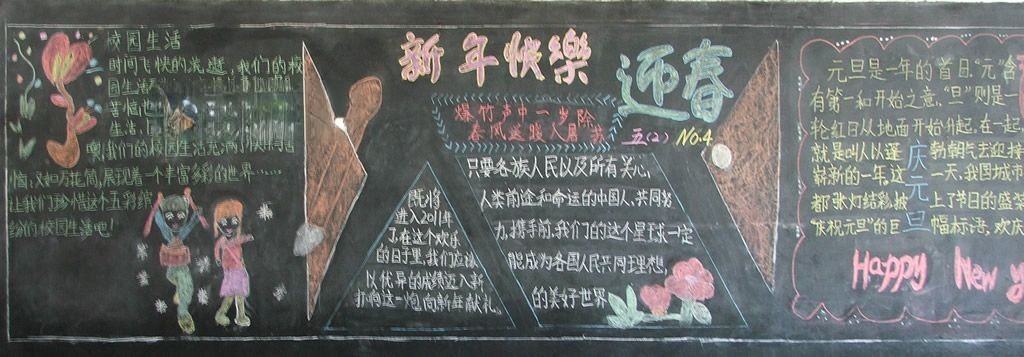 校园生活
时间飞快的流逝,我们的校
园生活
苦恼也
生活,
噢,我们的校园生活充满
恼,又如万花筒,展现着一个丰富多彩的世界……
让我们珍惜这个五彩缤
纷们校园生活吧!
新年快樂
迎春
爆竹声中一岁除
春风送暖入屠苏
五(2) No.4
既将
进入2011年
了在这个欢乐
的日子里,我们应该
以优异的成绩迈入新
打响这一炮,向新年献礼。
只要各族人民以及所有关心,
人类前途和命运的中国人,共同努
力,携手前,我们的这个星球一定
能成为各国人民共同理想,
的美好世界
元旦是一年的首日."元"含
有第一和开始之意,"旦"则是一
轮红日从地面开始升起.在一起,
就是叫人以蓬勃朝气去迎接
崭新的一年.这一天,我国城市
都张灯结彩披上了节日的盛装
"庆祝元旦"的巨幅标语,欢庆
庆元旦
Happy New y